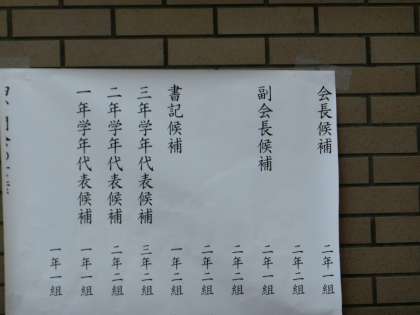 会長候補 二年一組
二年二組
副会長候補 二年一組
二年二組
二年二組
書記候補 一年二組
三年学年代表候補 三年二組
二年学年代表候補 二年二組
一年学年代表候補 一年一組
一年一組